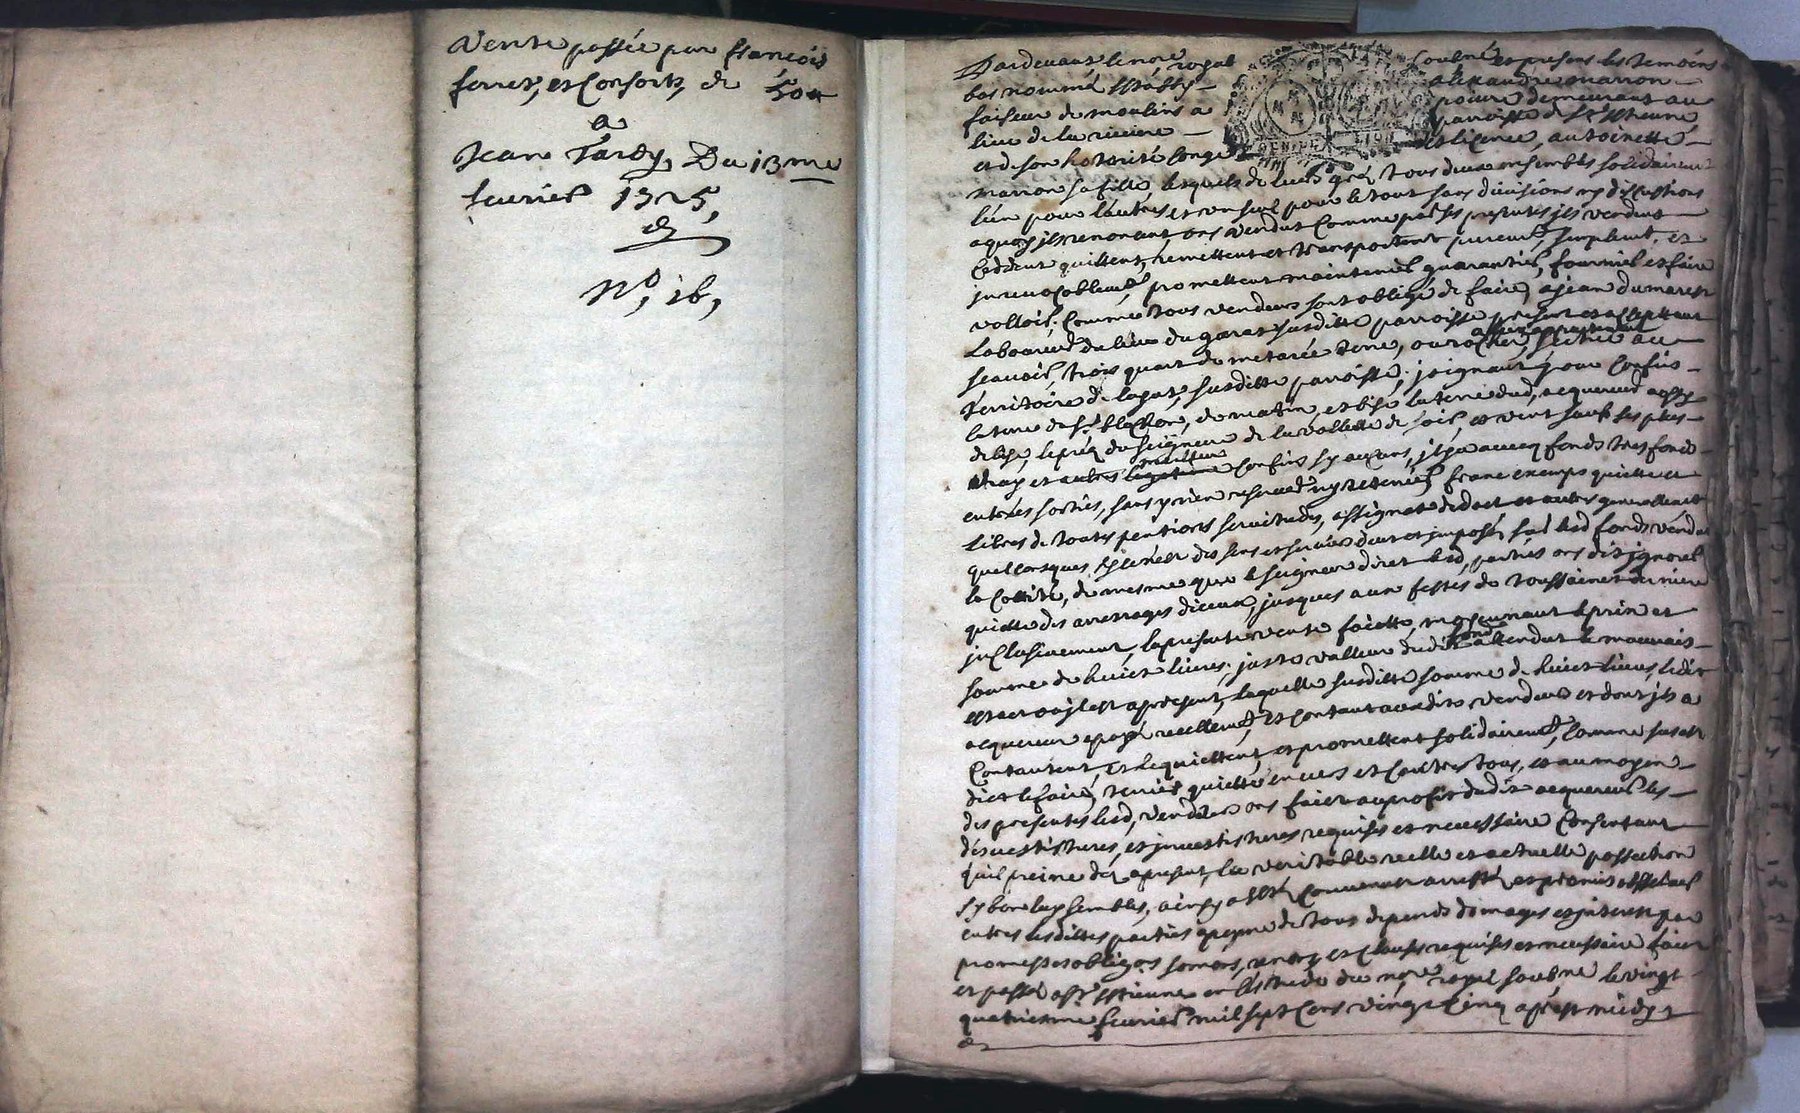 Vente passée par francois
ferret, et Consorts, de 50#
a
Jean Tardy, Du 13me
fevrier 1725,
&
No, 16,
Pardevant le nore royal soubné et presens les temoins
bas nommé estably alexandre marron
faiseur de moulins a demeurant au
lieu de la riviere parroisse de St
et de son hotorité licenée, antoinette
marron sa fille lesquels de leurs gré, tous deux ensembles solidairemt
l'un pour l'autre et un seul pour le tout sans divisions ny discustions
a quoy ils renoncent, ons vendut comme par ses presentes ils vendent
ceddent quittent, remettent et transportent puremt, simplemt, et
irrevocablemt, promettent maintenir guarantir, fournir et faire
valloir, comme tous vendeurs sont obligé de faire, a jean dumarest
laboureur du lieu du garat susditte parroisse present et acceptant
scavoir, trois quart de metarée terre, ou rocher, scitué au
territoire de lagat, susditte parroisse, joignant pour confins
la terre de sr de matin, et bise la terre dud, acquereur aussy
de bise, le pré du seigneur de la vallette de soir, et vent sauf ses plus
vray et autres meilleur confins sy aucuns, il y a avecq fonds tres fonds
entrées sorties, sans y rien reserver ny retenir franc exemps quitte et
libres de toutes pentions servitudes, et autres generallemt
quelconques, des sens et servis deut et imposés sur led fonds vendu
la cottité, de mesme que le seigneur diret lesd, parties ons dit ignorer
quitte des arrerages diceux, jusques aux festes de toussaint derniere
inclusivement, la presente vente faicte, moyennant le prix et
somme de huict livres, juste valleur dudit fond attendut le mauvais
estat ou il est apresent, laquelle susditte somme de huict livres, ledit
acquereur a payé reellemt, et contant auxdits vendeurs et dont ils
contantent, et le quittent, et promettent solidairemt, comme sus est
dict le faire, tenir quitte envers et contres tous, et au moyen
des presentes lesd, vendeurs ons faict au profit dudit acquereur les
desvestitures, et investitures requises et necessaire consentant
quil preine dez apresent, la veritable reelle et actuelle possection
sy bon luy sembles, ainsy a esté convenut arresté et promis observer
entres lesdittes parties a peyne de tous depends domages et interest par
promesses obligaons somons, renon et clauses requises et necessaire faict
et passé a st estienne en lestude du nore royal soubné le vingt
quatriesme fevrier mil sept cens vingt cinq apres midy
&